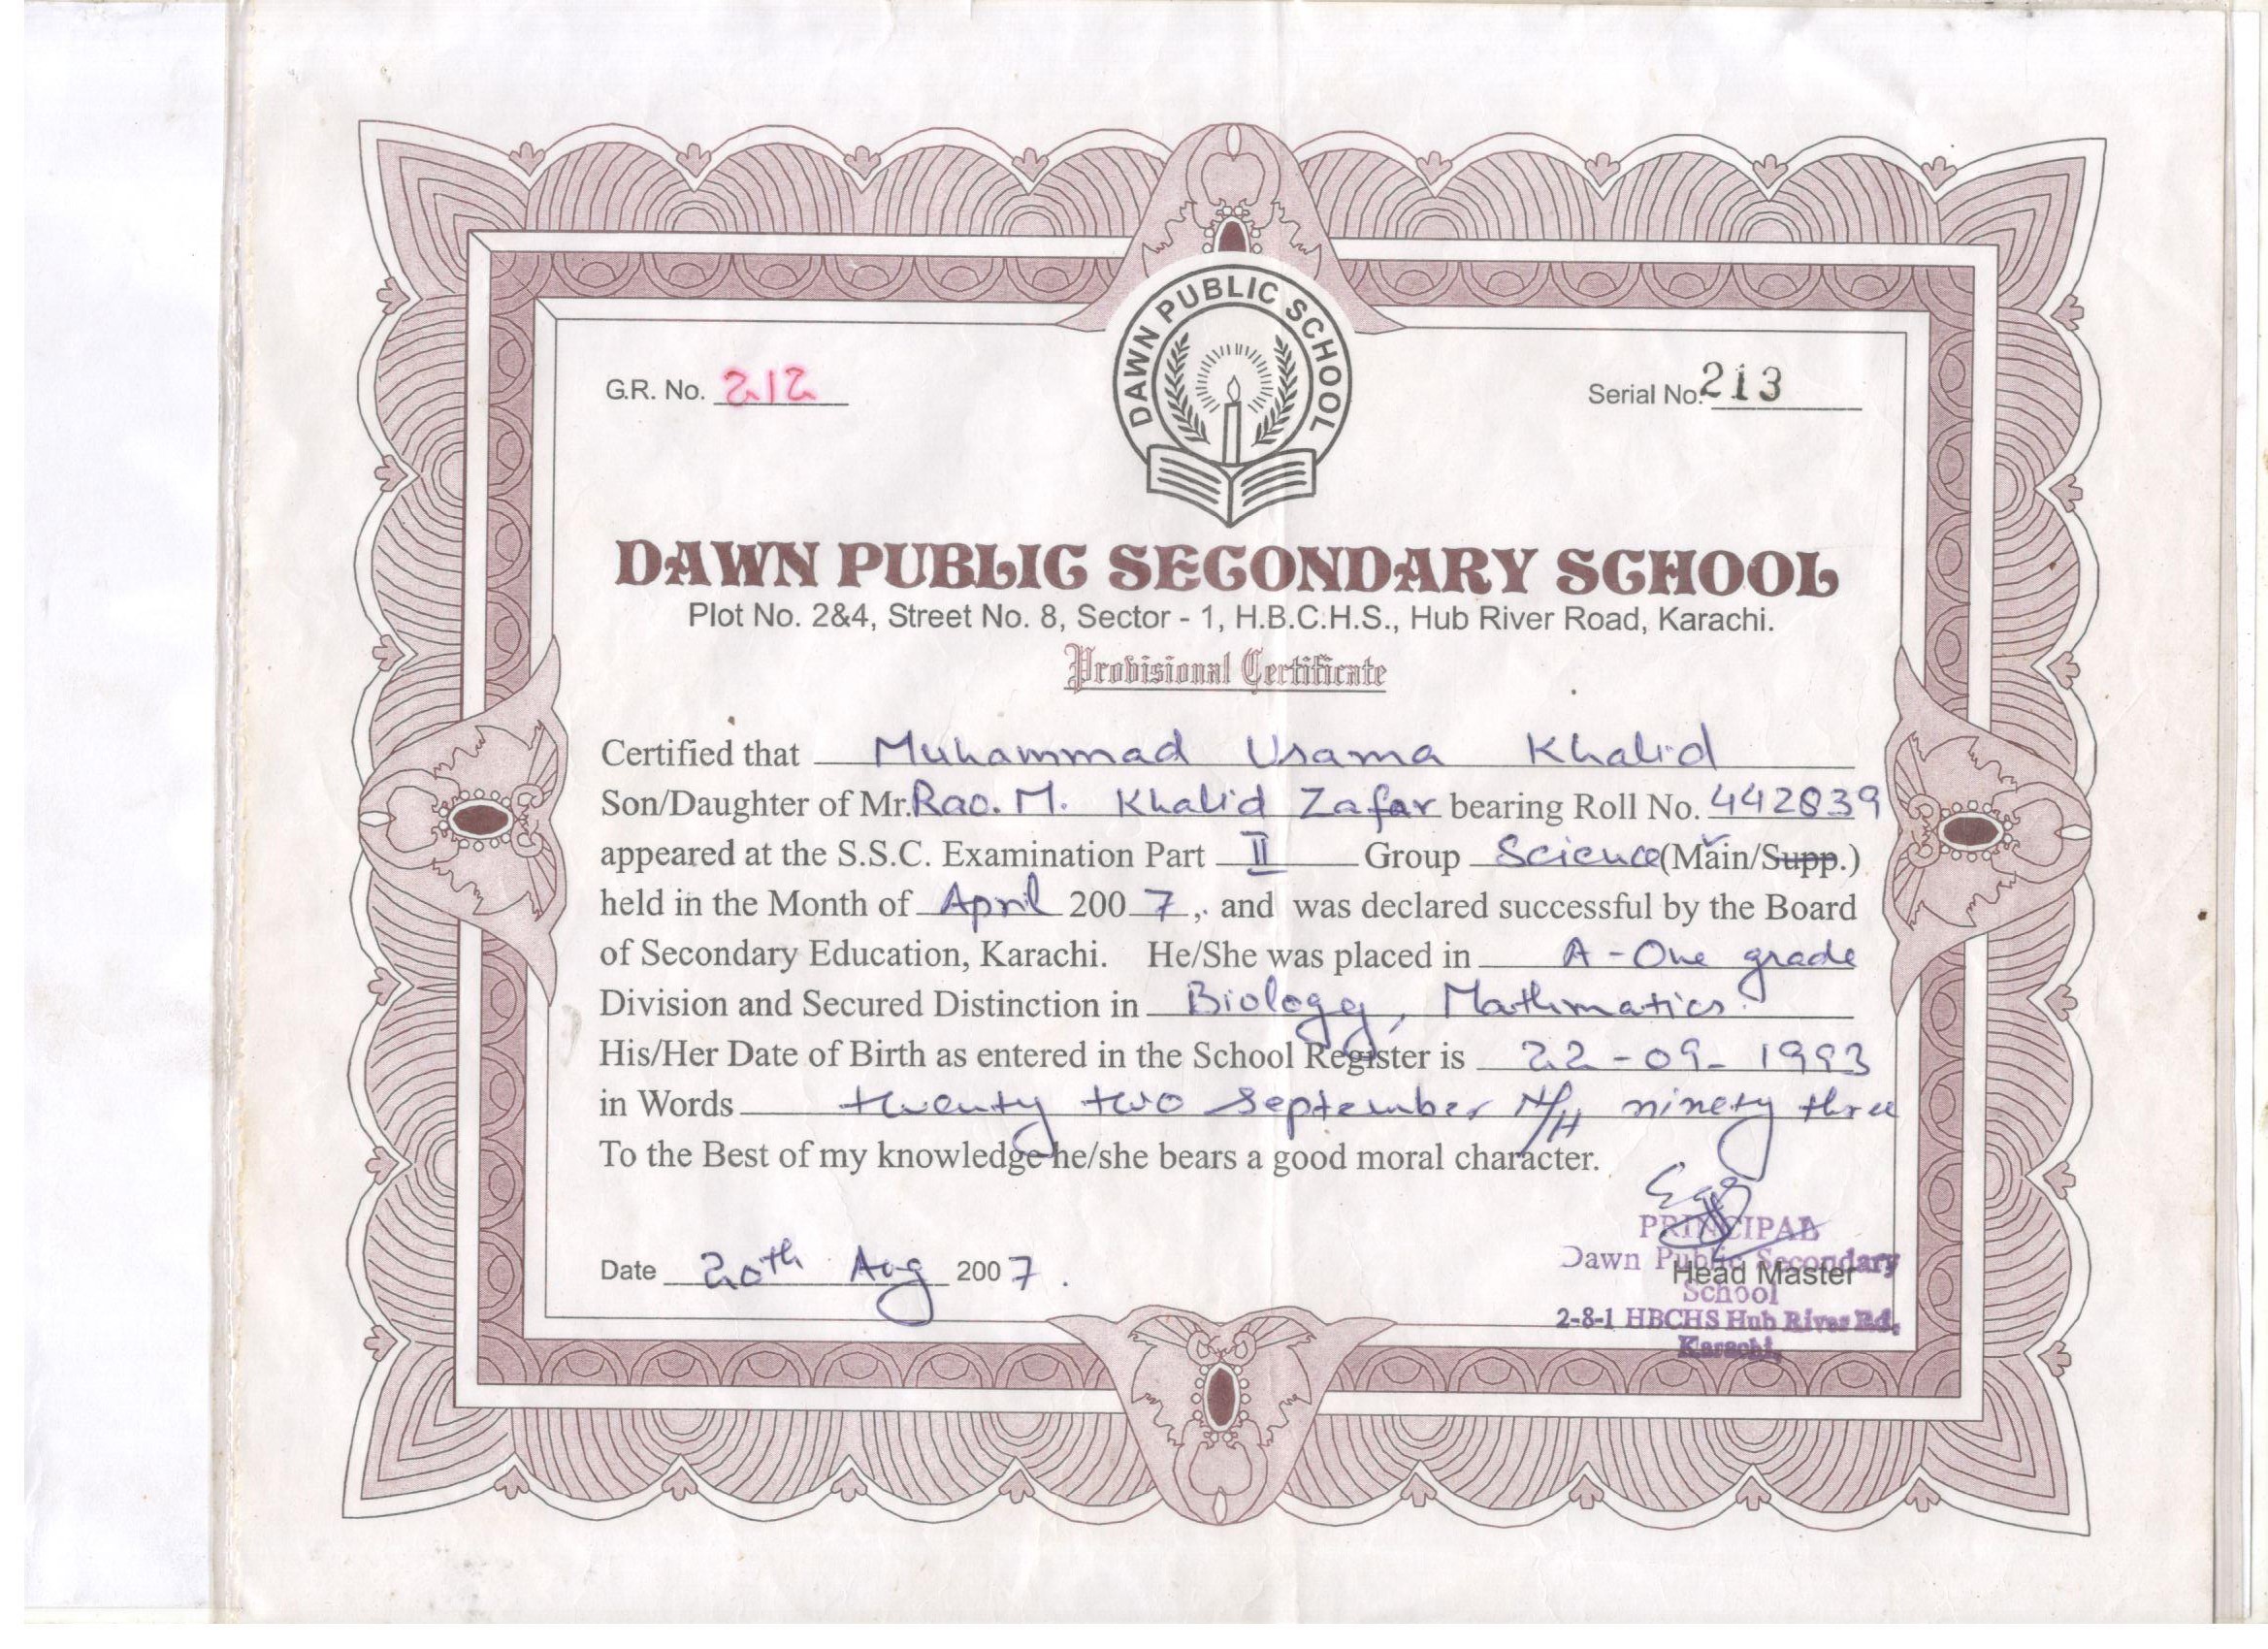 DAWN PUBLIC SCHOOL
G.R. No. 212
Serial No. 213
DAWN PUBLIC SECONDARY SCHOOL
Plot No. 2&4, Street No. 8, Sector - 1, H.B.C.H.S., Hub River Road, Karachi.
Provisional Certificate
Certified that Muhammad Usama Khalid
Son/Daughter of Mr. Rao. M. Khalid Zafar bearing Roll No. 442839
appeared at the S.S.C. Examination Part II Group Science (Main/Supp.)
held in the Month of April 2007, and was declared successful by the Board
of Secondary Education, Karachi. He/She was placed in A-One grade
Division and Secured Distinction in Biology, Mathmatics.
His/Her Date of Birth as entered in the School Register is 22-09-1993
in Words twenty two September N/H ninety three
To the Best of my knowledge he/she bears a good moral character.
Date 20th Aug 2007.
PRINCIPAL
Dawn Public Secondary
Head Master
School
2-8-1 HBCHS Hub River Rd,
Karachi.